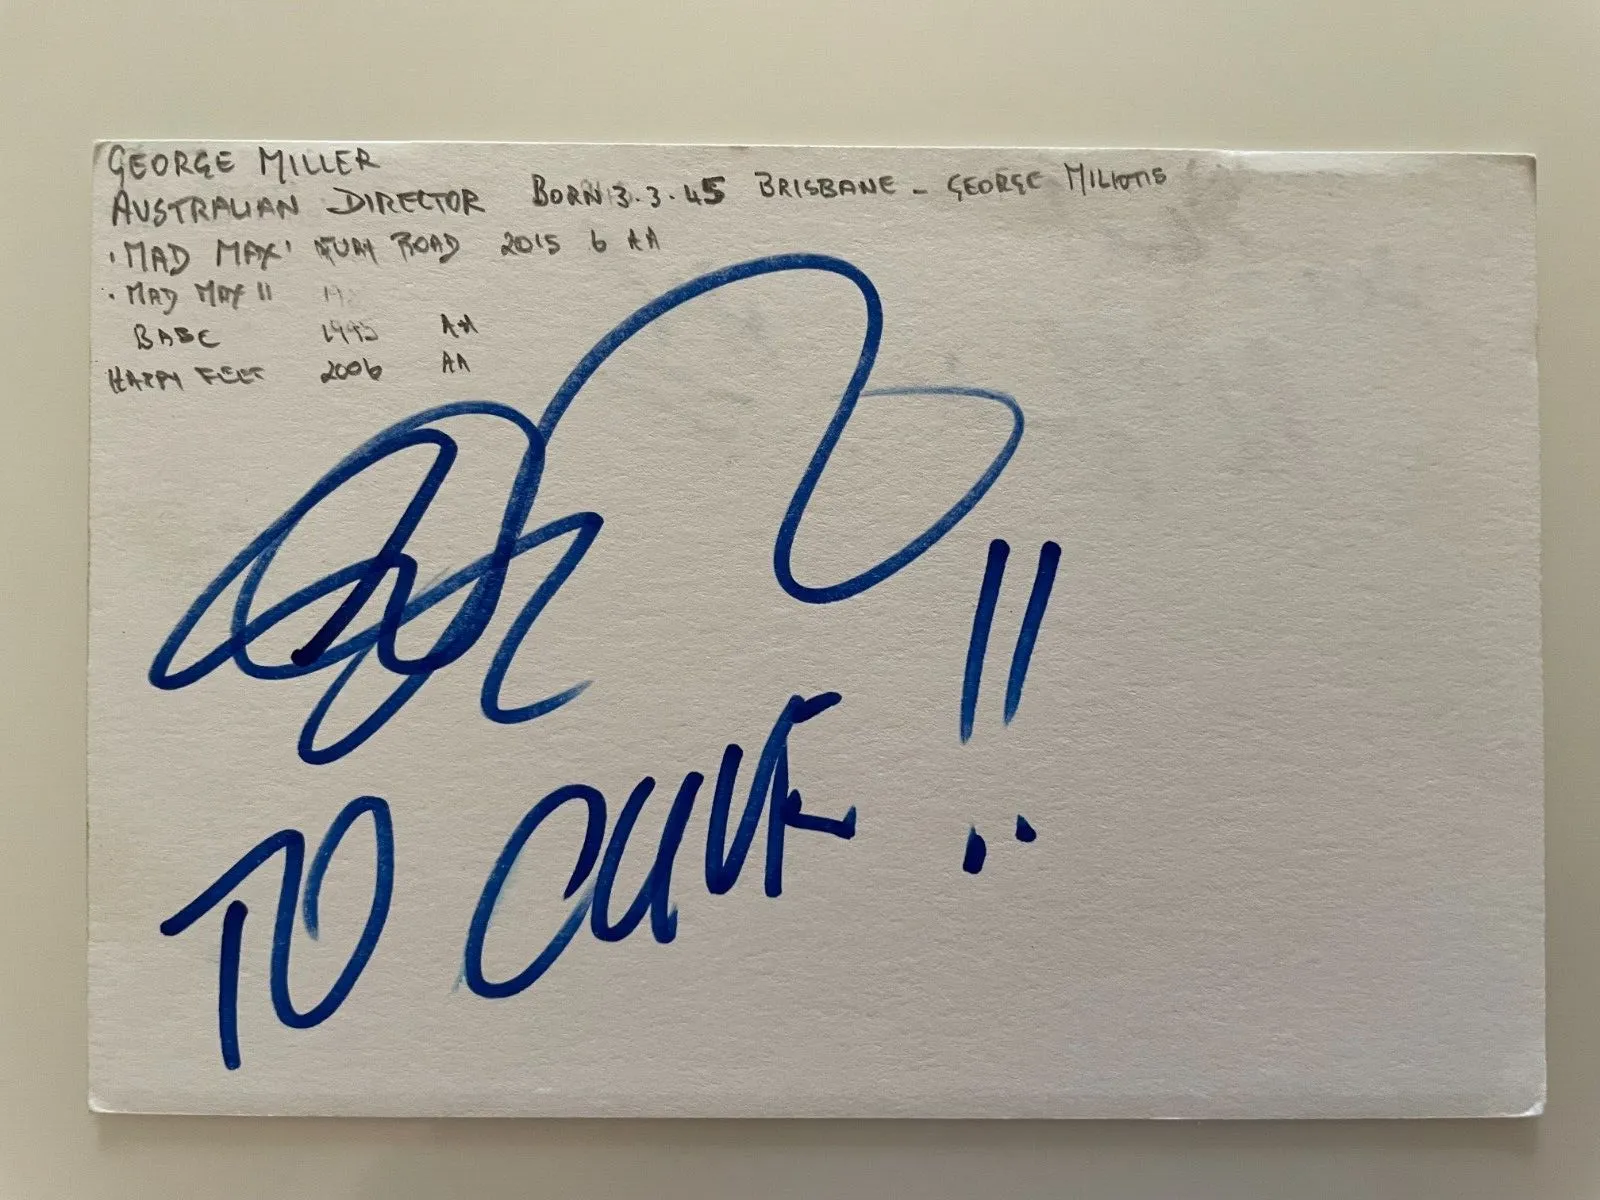 GEORGE MILLER
AUSTRALIAN DIRECTOR BORN 3.3.45 BRISBANE - GEORGE MILIOTIS
'MAD MAX' FURY ROAD 2015 6 AA
• MAD MAX II
BABE 1995 AA
HAPPY FEET 2006 AA
!!
TO CLIVE